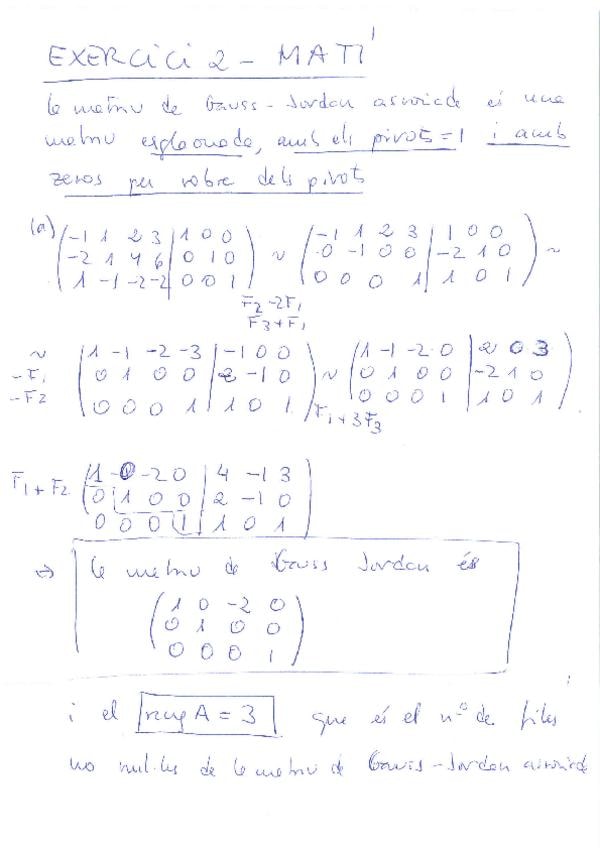 EXERCICI 2 - MATÍ
la matriu de Gauss-Jordan associada és una
matriu esglaonada, amb els pivots = 1 i amb
zeros per sobre dels pivots
(a) (-1 1 2 3 | 1 0 0) ~ (-1 1 2 3 | 1 0 0) ~
(-2 1 4 6 | 0 1 0) (0 -1 0 0 | -2 1 0)
(1 -1 -2 -2 | 0 0 1) (0 0 0 1 | 1 0 1)
F2-2F1
F3+F1
~ (1 -1 -2 -3 | -1 0 0) ~ (1 -1 -2 0 | 2 0 3)
-F1 (0 1 0 0 | 2 -1 0) (0 1 0 0 | -2 1 0)
-F2 (0 0 0 1 | 1 0 1) (0 0 0 1 | 1 0 1)
F1+3F3
F1+F2 (1 -0 -2 0 | 4 -1 3)
(0 1 0 0 | 2 -1 0)
(0 0 0 1 | 1 0 1)
=> la matriu de Gauss Jordan és
(1 0 -2 0)
(0 1 0 0)
(0 0 0 1)
i el rang A = 3 que és el nº de files
no nul·les de la matriu de Gauss-Jordan associada